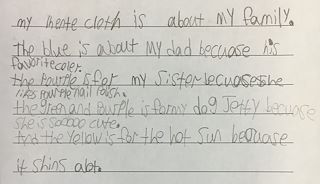 my kente cloth is about my family.
the blue is about my dad becuase his
favorite color.
the purple is for my sister becuase she
likes purple nail polish.
the green and purple is for my dog Jetty becuase
she is soooo cute.
And the yellow is for the hot sun becuase
it shins alot.